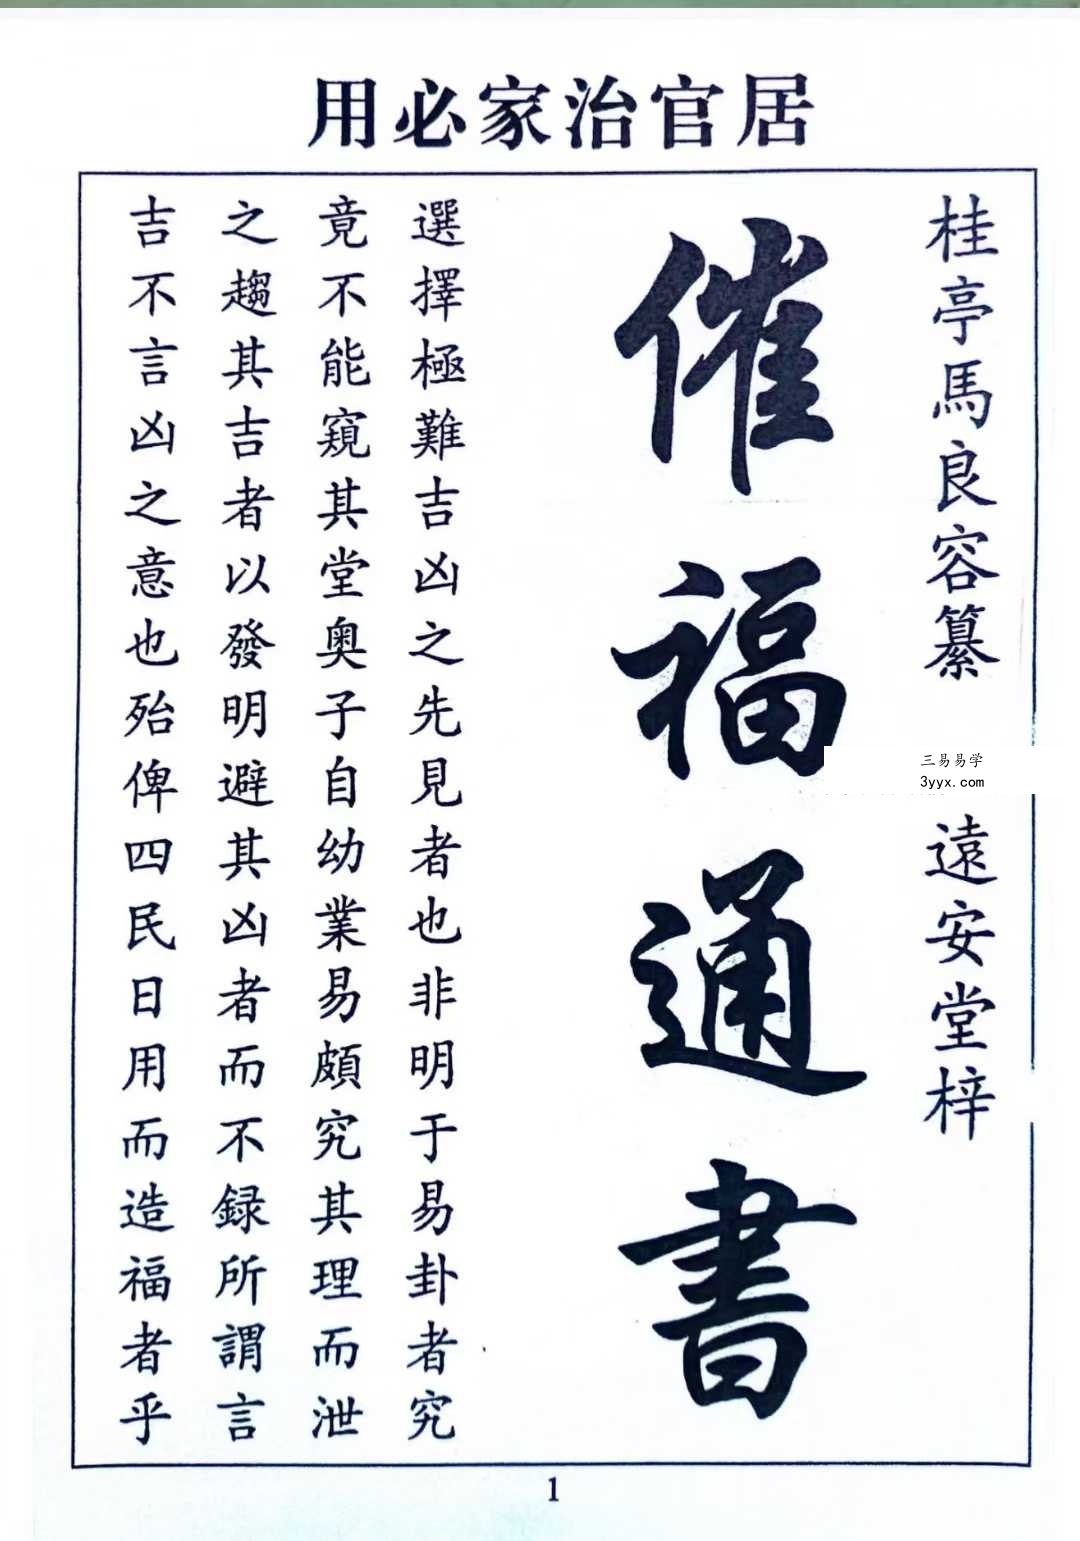 居官治家必用
桂亭馬良容纂
遠安堂梓
催福通書
選擇極難吉凶之先見者也非明于易卦者究
竟不能窺其堂奧子自幼業易頗究其理而泄
之趨其吉者以發明避其凶者而不録所謂言
吉不言凶之意也殆俾四民日用而造福者乎
三易易学
3yyx.com
1